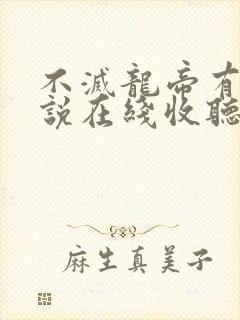 不滅龍帝有
說在綫收聽
麻生真美子